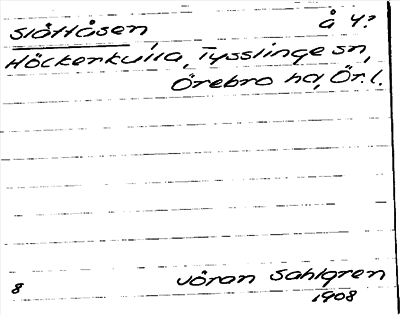 Slåttåsen å 4?
Höckerkulla, Tysslinge sn,
Örebro hd, Ör. l.
Jöran Sahlgren
8 1908